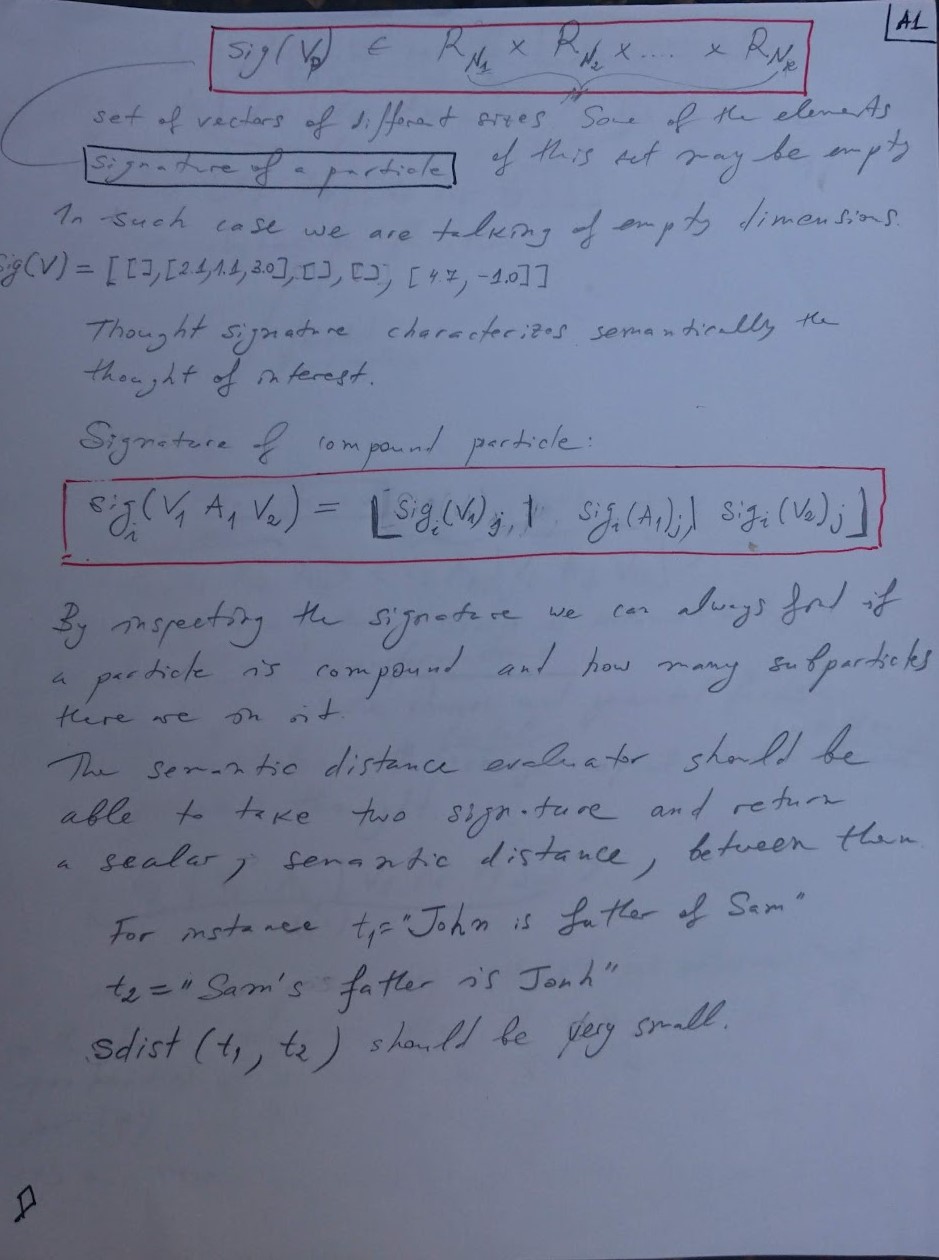 A1
Sig(Vp) ∈ R_N1 × R_N2 × .... × R_Nk
set of vectors of different sizes Some of the elements
signature of a particle of this set may be empty
In such case we are talking of empty dimensions.
Sig(V) = [[], [2.1, 1.1, 3.0], [], [], [4.7, -1.0]]
Thought signature characterizes semantically the
thought of interest.
Signature of compound particle:
sig_i(V1 A1 V2) = [Sig_i(V1)_j, | Sig_i(A1)_j | Sig_i(V2)_j]
By inspecting the signature we can always find if
a particle is compound and how many subparticles
there are in it.
The semantic distance evaluator should be
able to take two signature and return
a scalar, semantic distance, between them
For instance t1="John is father of Sam"
t2="Sam's father is Jonh"
sdist(t1, t2) should be very small.